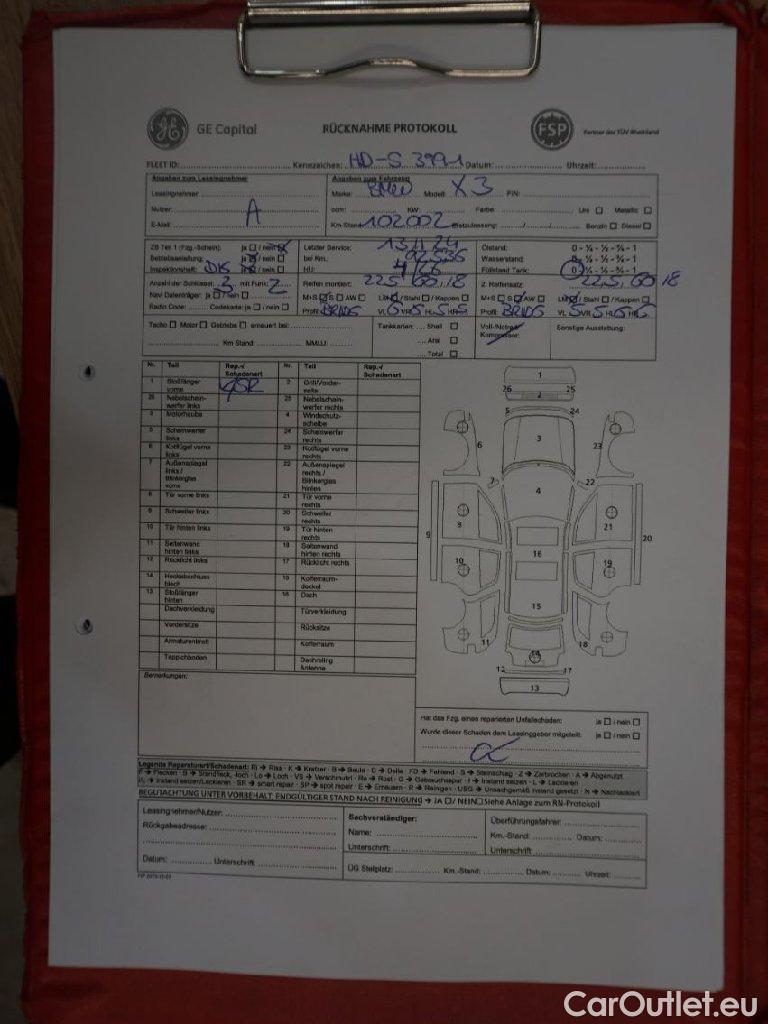 GE Capital RÜCKNAHME PROTOKOLL FSP Partner des TÜV Rheinland
FLEET ID: Kennzeichen: HD-S 3991 Datum: Uhrzeit:
Angaben zum Leasingnehmer Angaben zum Fahrzeug
Leasingnehmer: Marke: BMW Modell: X3 FIN:
Nutzer: A ccm: KW: Farbe: Uni Metallic
E-Mail: Km-Stand: 102002 Erstzulassung: Benzin Diesel
ZB Teil 1 (Fzg.-Schein): ja / nein Letzter Service: 13.11.24 Ölstand: 0 - ¼ - ½ - ¾ - 1
Betriebsanleitung: ja / nein bei Km.: 92536 Wasserstand: 0 - ¼ - ½ - ¾ - 1
Inspektionsheft: DIS ja / nein HU: 4/26 Füllstand Tank: 0 - ¼ - ½ - ¾ - 1
Anzahl der Schlüssel: 3 mit Funk: 2 Reifen montiert: 225, 60, 18 2. Reifensatz: 225, 60 18
Navi Datenträger: ja / nein M+S S AW LM / Stahl / Kappen M+S S AW LM / Stahl / Kappen
Radio Code: Codekarte: ja / nein Profil: BRIDG VL 5 VR 5 HL 5 HR 5 Profil: BRIDG VL 5 VR 5 HL 5 HR 5
Tacho Motor Getriebe erneuert bei: Tankkarten: Shell Voll-/Notrad Sonstige Ausstattung:
Km Stand: NM/LU: Aral Kompressor:
Total
Nr. Teil Rep.-/ Schadenart Nr. Teil Rep.-/ Schadenart
1 Stoßfänger vorne 2 Grill/Vorderseite
26 Nebelscheinwerfer links 25 Nebelscheinwerfer rechts
3 Motorhaube 4 Windschutzscheibe
5 Scheinwerfer links 24 Scheinwerfer rechts
6 Kotflügel vorne links 23 Kotflügel vorne rechts
7 Außenspiegel links / Blinkerglas vorne 22 Außenspiegel rechts / Blinkerglas hinten
8 Tür vorne links 21 Tür vorne rechts
9 Schweller links 20 Schweller rechts
10 Tür hinten links 19 Tür hinten rechts
11 Seitenwand hinten links 18 Seitenwand hinten rechts
12 Rücklicht links 17 Rücklicht rechts
14 Heckabschlussblech 15 Kofferraumdeckel
13 Stoßfänger hinten 16 Dach
Dachverkleidung Türverkleidung
Vordersitze Rücksitze
Armaturenbrett Kofferraum
Teppichboden Dachreling Antenne
1
26 25
2
5 24
3
6 23
7 22
4
8 21
9 20
16
10 19
15
11 18
14
12 17
13
Bemerkungen:
Hat das Fzg. einen reparierten Unfallschaden: ja / nein
Wurde dieser Schaden dem Leasinggeber mitgeteilt: ja / nein
Legende Reparaturart/Schadenart: Ri → Riss · K → Kratzer · B → Beule · D → Delle · FD → Fehlend · S → Steinschlag · Z → Zerbrochen · A → Abgenutzt
F → Flecken · B → Brandfleck, -loch · Lo → Loch · VS → Verschmutzt · Ro → Rost · G → Gebrauchsspur · I → Instand setzen · L → Lackieren
I/L → Instand setzen/Lackieren · SR → smart repair · SP → spot repair · E → Erneuern · R → Reinigen · USG → Unsachgemäß instand gesetzt · N → Nachlackiert
BEGUTACHTUNG UNTER VORBEHALT: ENDGÜLTIGER STAND NACH REINIGUNG → JA / NEIN Siehe Anlage zum RN-Protokoll
Leasingnehmer/Nutzer: Sachverständiger: Überführungsfahrer:
Rückgabeadresse: Name: Km.-Stand: Datum:
Unterschrift: Unterschrift
Datum: Unterschrift ÜG Stellplatz: Km.-Stand: Datum: Uhrzeit:
CarOutlet.eu